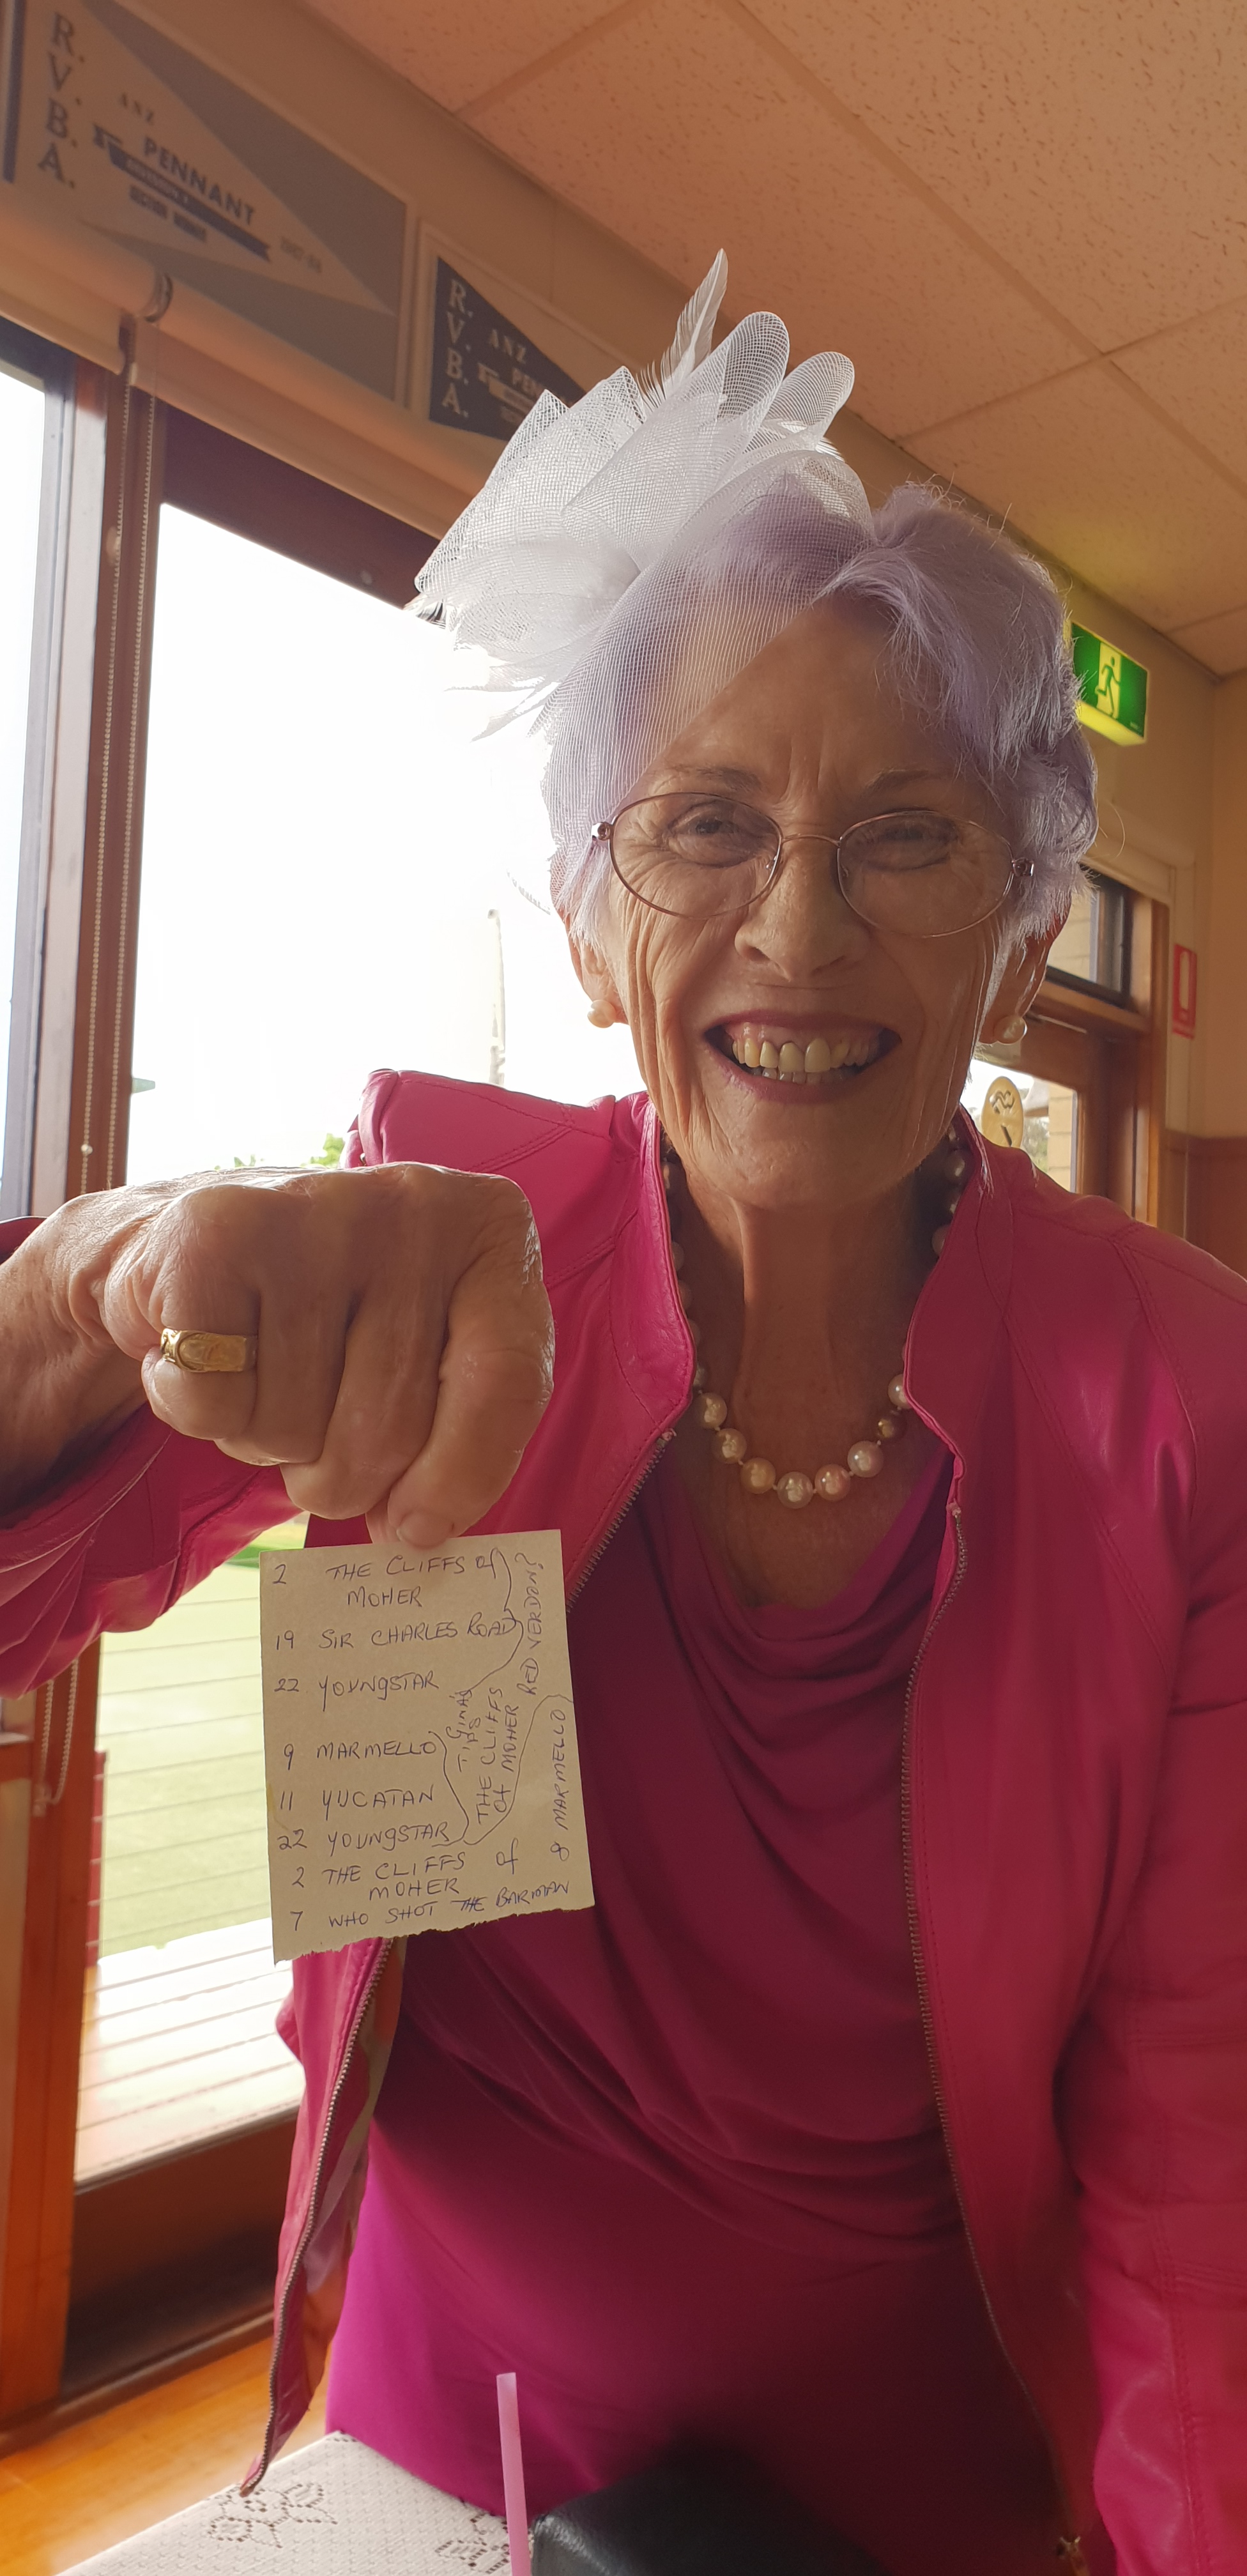 R.
V.
B.
A.
ANZ
PENNANT
R.
V.
B.
A.
ANZ
2 THE CLIFFS of
MOHER
19 SIR CHARLES ROAD
22 YOUNGSTAR
9 MARMELLO
11 YUCATAN
22 YOUNGSTAR
2 THE CLIFFS of
MOHER
7 WHO SHOT THE BARMAN
TIPS
THE CLIFFS
of MOHER
RED VERDON?
8 MARMELLO